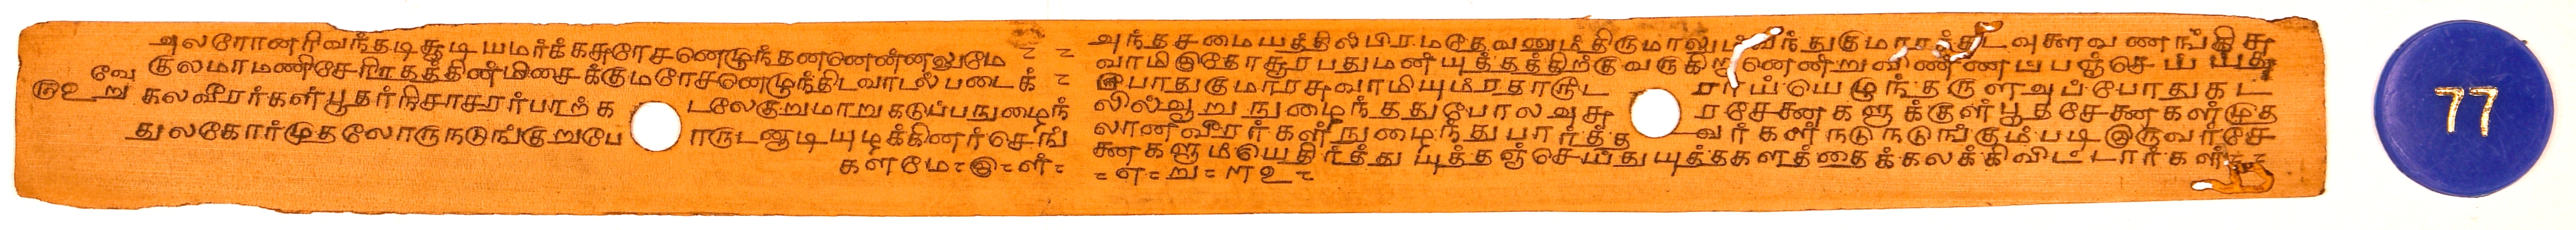 அலரோனரிவந்தடிசூடியமர்க்கசுரேசனெழுந்தனனென்னலுமே
குலமாமணிசேரிரதத்தின்மிசைக்குமரேசனெழுந்திடவாடல் படைக்
கலவீரர்கள்பூதர்நிசாசரர்பாற் க டலேகுறுமாறுகடுப்பநுழைந்
துலகோர்முதலோருநடுங்குறுபோ ராருடனாடியுடிக்கினர்செங்
களமே
அந்தசமையத்தில்பிரமதேவனும்திருமாலும்வந்துகுமார
வாமிஇதோசூரபதுமன்யுத்தத்திற்குவருகிறானென்றுவிண்ணப்பஞ்செய்யது
இபொதுகுமாரசுவாமியும்ரதாரூட ராய்யெழுந்தருளஅப்போதுகட
லில்ஆறுநுழைந்ததுபோலஅசு ரசேனைகளுக்குள்பூதசேனைகள்முத
லானவீரர்கள்நுழைந்துபார்த்த வர்கள்நடுநடுங்கும்படிஇருவர்சே
னைகளும்யெதிர்த்துயுத்தஞ்செய்துயுத்தகளத்தைக்கலக்கிவிட்டார்கள்
77